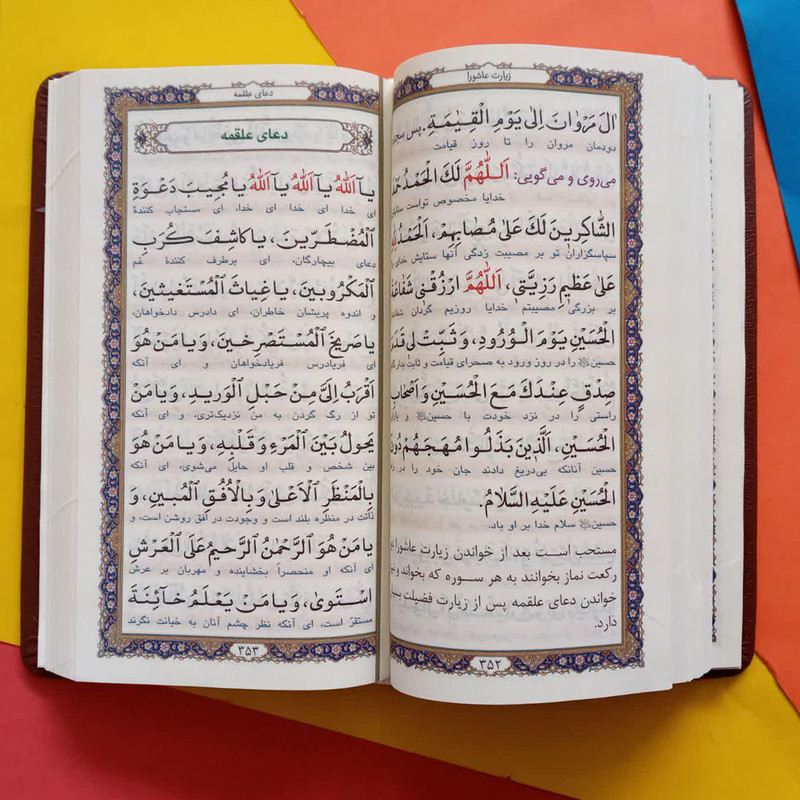 زیارت عاشورا
الَ مَرْوَانَ اِلىٰ يَوْمِ الْقِيٰمَةِ. پس
دودمان مروان را تا روز قیامت
می‌روی و می‌گویی: اَللّٰهُمَّ لَكَ الْحَمْدُ
خدایا مخصوص توست
الشّاكِرينَ لَكَ عَلىٰ مُصٰابِهِمْ، اَلْحَمْدُ
سپاسگزاران تو بر مصیبت زدگی آنها ستایش خدای
عَلىٰ عَظيمِ رَزِيَّتى، اَللّٰهُمَّ ارْزُقْنى
بر بزرگی مصیبتم خدایا روزیم گردان
الْحُسَيْنِ يَوْمَ الْوُرُودِ، وَ ثَبِّتْ لى
حسین را در روز ورود به صحرای قیامت و ثابت
صِدْقٍ عِنْدَكَ مَعَ الْحُسَيْنِ وَ اَصْحٰابِ
راستی را در نزد خودت با حسین و
الْحُسَيْنِ، اَلَّذينَ بَذَلُوا مُهَجَهُمْ
حسین آنانکه بی‌دریغ دادند جان خود را در
الْحُسَيْنِ عَلَيْهِ السَّلامُ.
حسین سلام خدا بر او باد.
مستحب است بعد از خواندن زیارت عاشورا
رکعت نماز بخوانند به هر سوره که بخواند و
خواندن دعای علقمه پس از زیارت فضیلت
دارد.
۳۵۲
دعای علقمه
دعای علقمه
يآ اَللّٰهُ يآ اَللّٰهُ يآ اَللّٰهُ يا مُجيبَ دَعْوَةِ
ای خدا ای خدا ای خدا، ای مستجاب کنندهٔ
الْمُضْطَرّينَ، يا كاشِفَ كُرَبِ
دعای بیچارگان، ای برطرف کنندهٔ غم
الْمَكْرُوبينَ، يا غِياثَ الْمُسْتَغيثينَ،
و اندوه پریشان خاطران، ای دادرس دادخواهان،
يا صَريخَ الْمُسْتَصْرِخينَ، وَ يا مَنْ هُوَ
ای فریادرس فریادخواهان و ای آنکه
اَقْرَبُ اِلَىَّ مِنْ حَبْلِ الْوَريدِ، وَ يا مَنْ
تو از رگ گردن به من نزدیک‌تری، و ای آنکه
يَحُولُ بَيْنَ الْمَرْءِ وَ قَلْبِهِ، وَ يا مَنْ هُوَ
بین شخص و قلب او حایل می‌شوی، ای آنکه
بِالْمَنْظَرِ الْاَعْلىٰ وَ بِالْاُفُقِ الْمُبينِ، وَ
ذاتت در منظره بلند است و وجودت در افق روشن است، و
يا مَنْ هُوَ الرَّحْمٰنُ الرَّحيمُ عَلَى الْعَرْشِ
ای آنکه او منحصراً بخشاینده و مهربان بر عرش
اسْتَوىٰ، وَ يا مَنْ يَعْلَمُ خآئِنَةَ
مستقرّ است، ای آنکه نظر چشم آنان به خیانت نگرند
۳۵۳